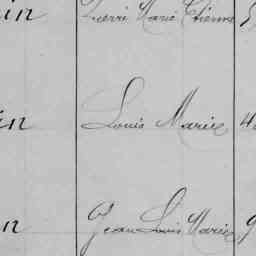 in Pierre Marie Etienne
in Louis Marie
n Jean Louis Marie